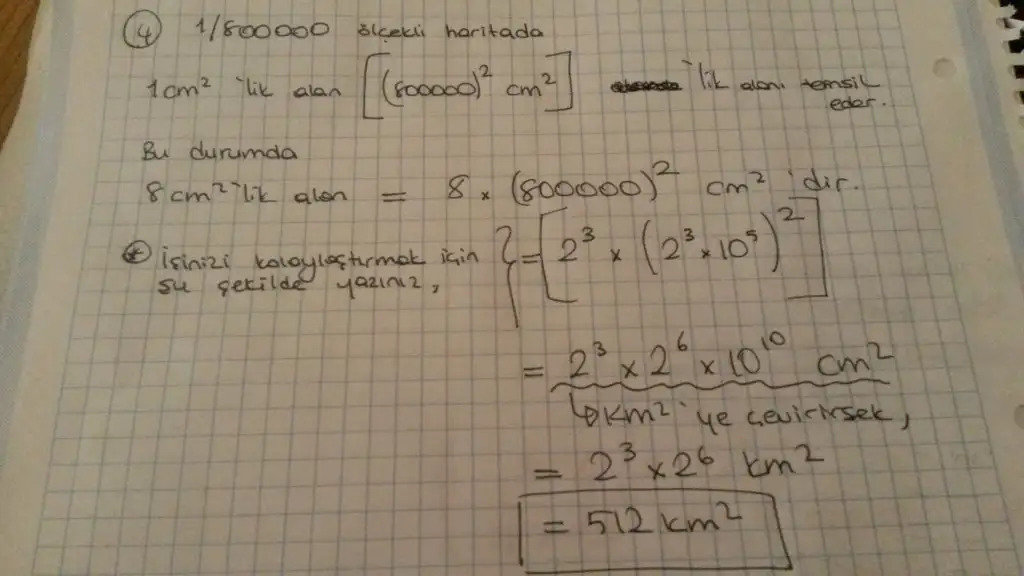 4 1/800000 ölçekli haritada
1cm² 'lik alan [(800000)² cm²] 'lik alanı temsil
eder.
Bu durumda
8cm²'lik alan = 8 x (800000)² cm² 'dir.
* İşinizi kolaylaştırmak için { = [2³ x (2³ x 10⁵)²]
şu şekilde yazınız,
= 2³ x 2⁶ x 10¹⁰ cm²
↳ km² 'ye çevirirsek,
= 2³ x 2⁶ km²
= 512 km²